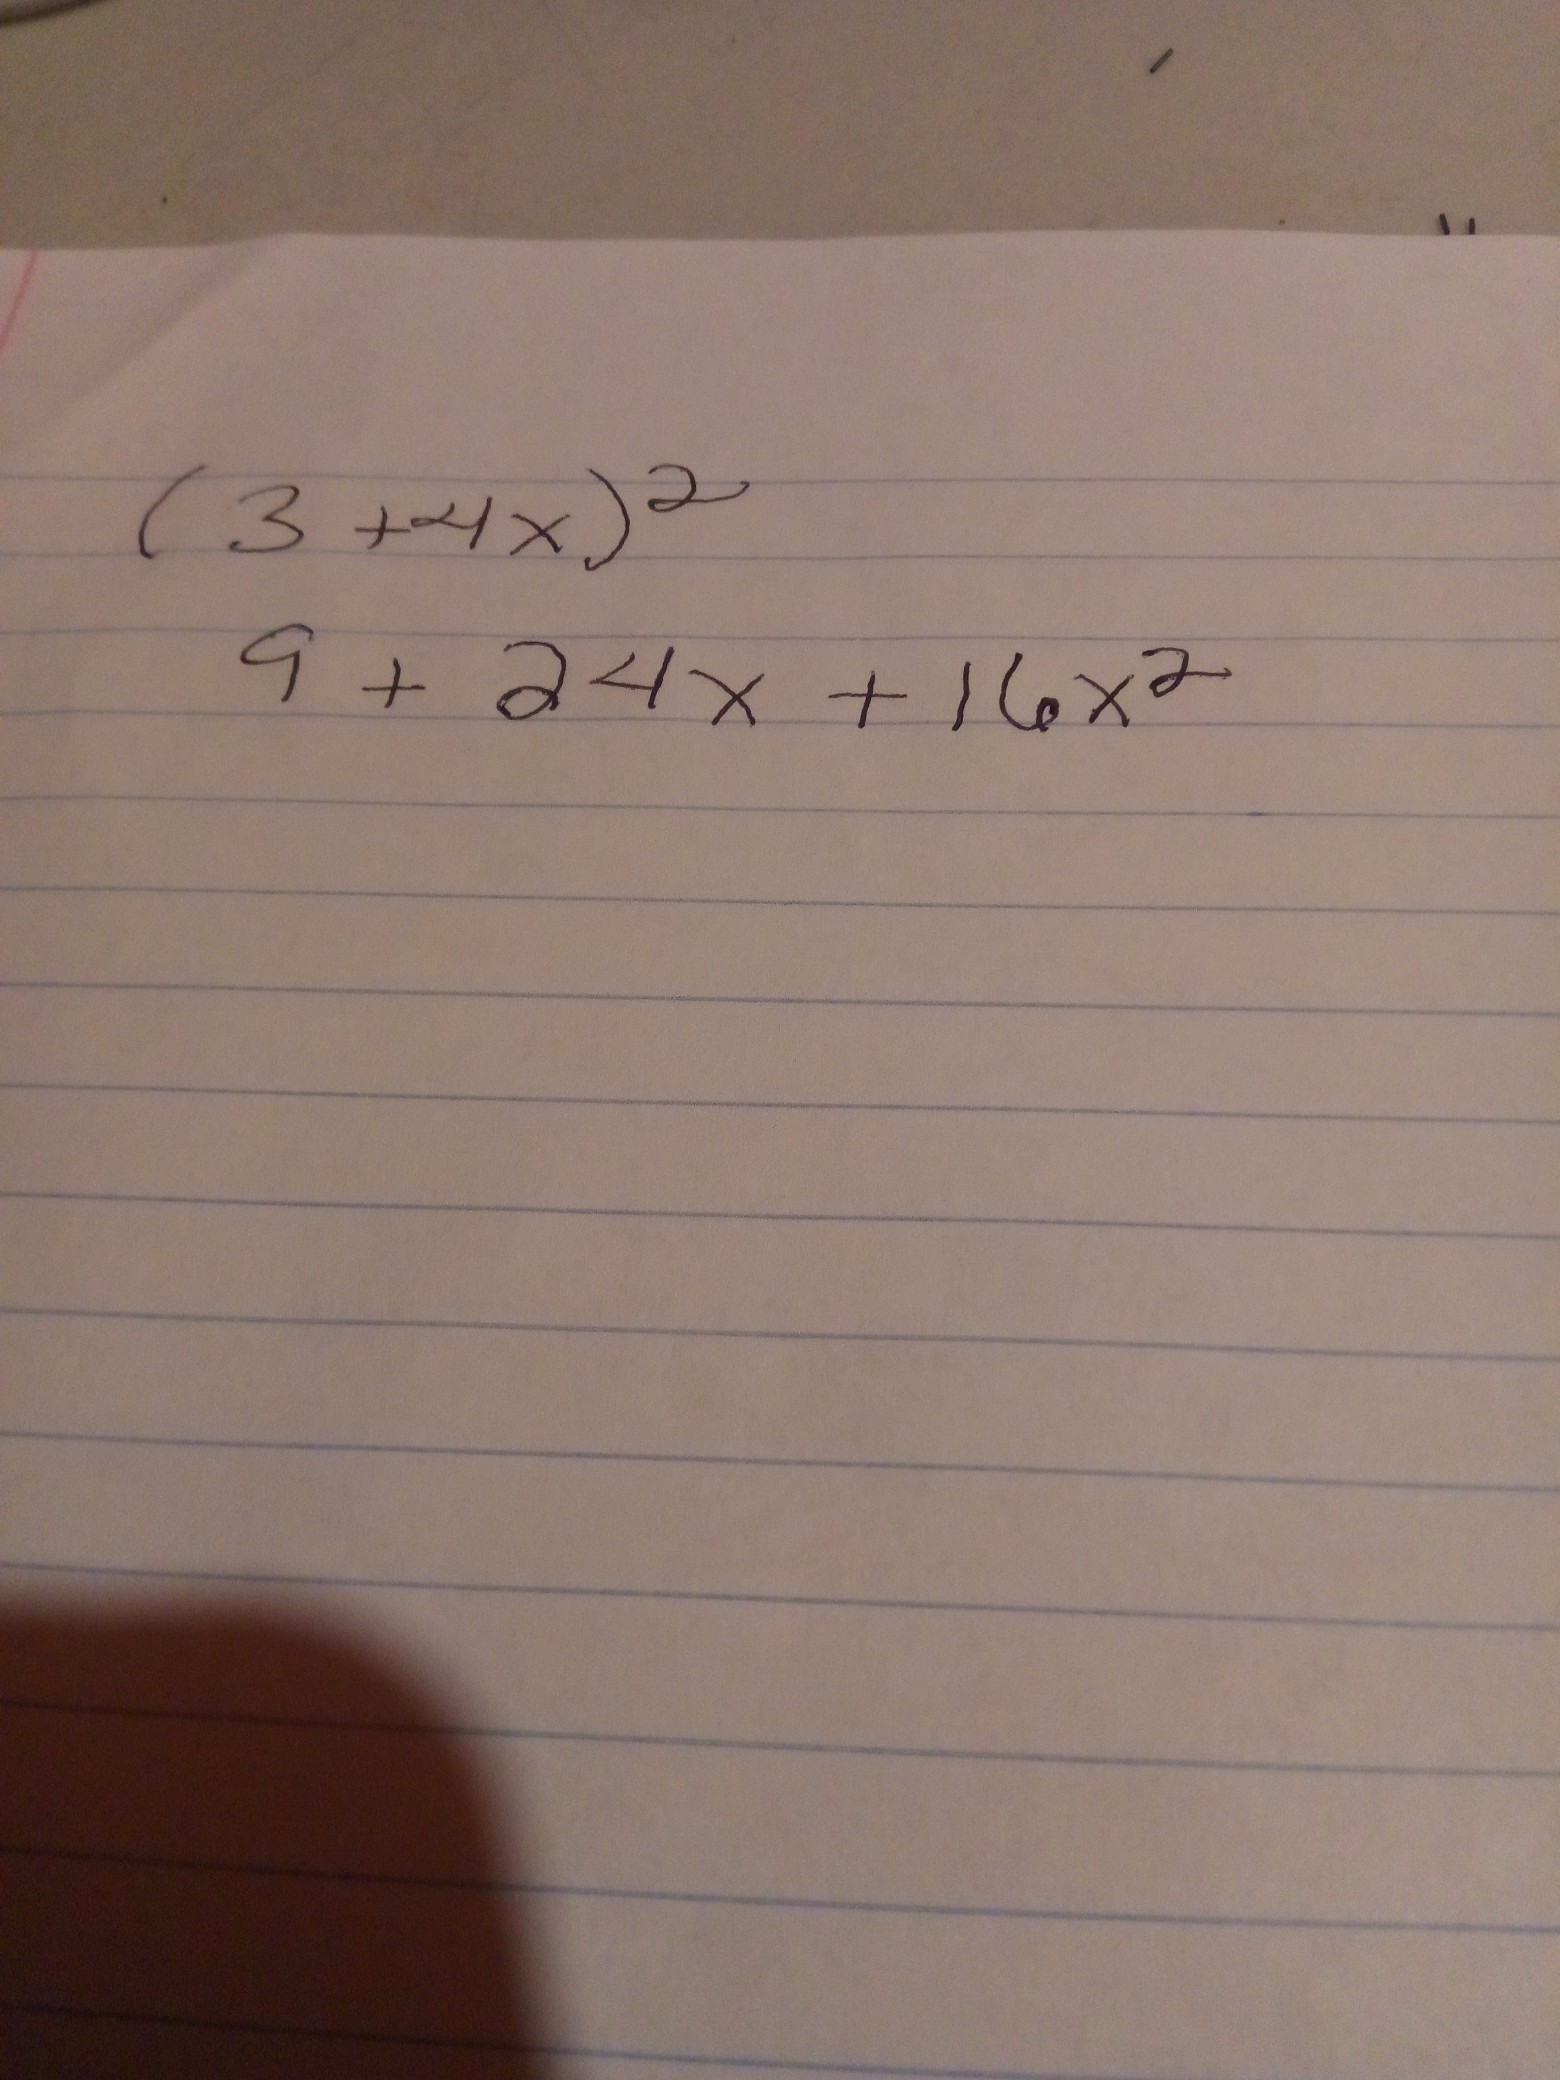 (3 + 4x)²
9 + 24x + 16x²